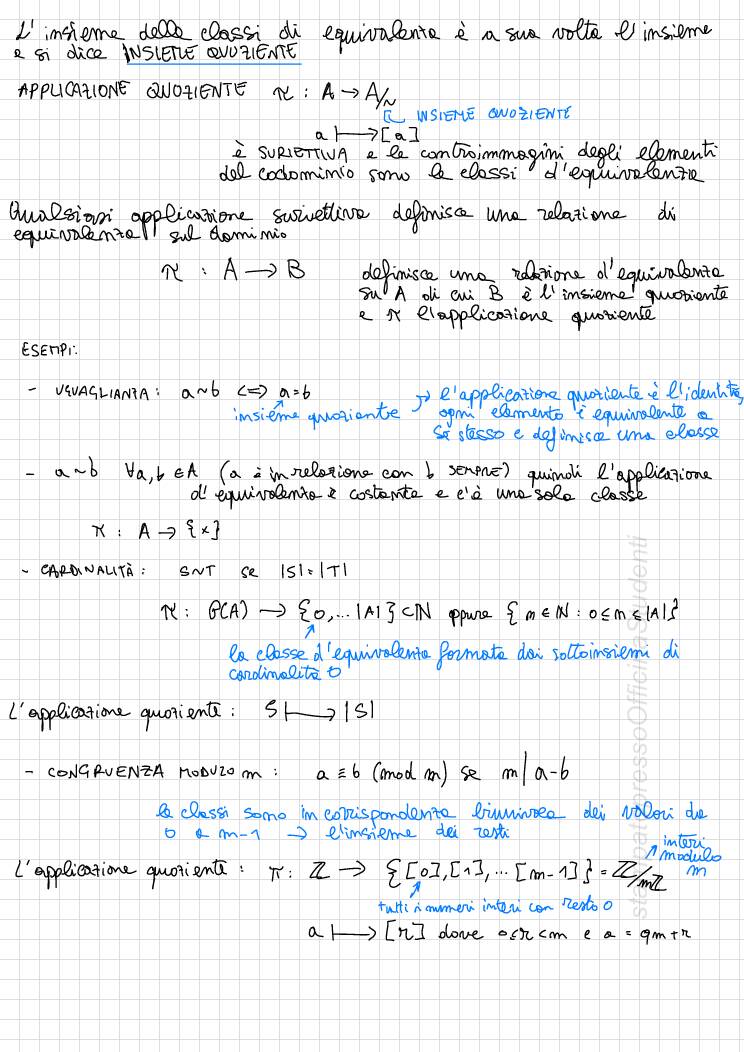 L'insieme delle classi di equivalenza è a sua volta l'insieme
e si dice INSIEME QUOZIENTE
APPLICAZIONE QUOZIENTE π : A → A/~
INSIEME QUOZIENTE
a ↦ [a]
è SURIETTIVA e le controimmagini degli elementi
del codominio sono le classi d'equivalenza
Qualsiasi applicazione suriettiva definisce una relazione di
equivalenza sul dominio
π : A → B definisce una relazione d'equivalenza
su A di cui B è l'insieme quoziente
e π l'applicazione quoziente
ESEMPI:
- UGUAGLIANZA: a~b <=> a=b
insieme quoziente → l'applicazione quoziente è l'identità,
ogni elemento è equivalente a
sé stesso e definisce una classe
- a~b ∀a,b ∈A (a è in relazione con b SEMPRE) quindi l'applicazione
d'equivalenza è costante e c'è una sola classe
π : A → {x}
- CARDINALITÀ: S~T se |S|=|T|
π : P(A) → {0,...|A|} ⊂ ℕ oppure {m ∈ ℕ : 0≤m≤|A|}
la classe d'equivalenza formata dai sottoinsiemi di
cardinalità 0
L'applicazione quoziente : S ↦ |S|
- CONGRUENZA MODULO m : a ≡ b (mod m) se m | a-b
le classi sono in corrispondenza biunivoca dei valori da
0 a m-1 → l'insieme dei resti
interi
modulo
m
L'applicazione quoziente : π : ℤ → {[0],[1],...[m-1]} = ℤ/mℤ
tutti i numeri interi con resto 0
a ↦ [r] dove 0≤r<m e a = qm+r
stampatopressoOfficinaStudenti